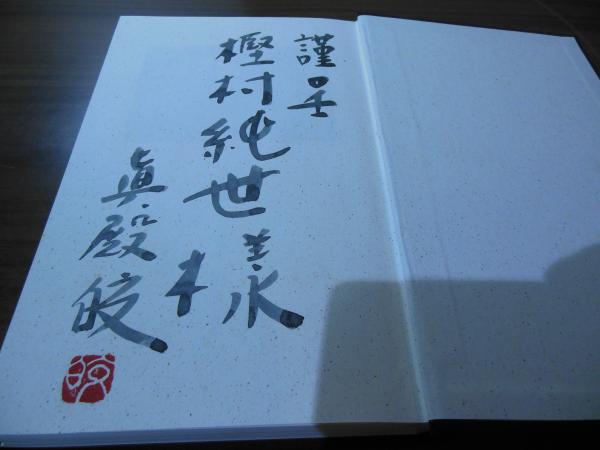 謹呈
樫村純世様
眞殿皎
皎